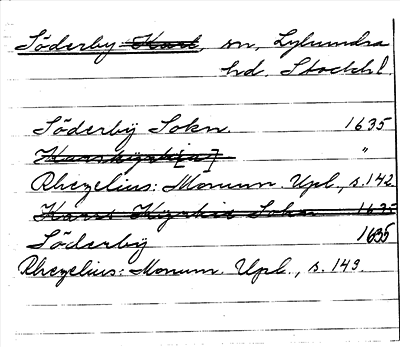 Söderby Karl, sn, Lyhundra
hd. Stockh l.
Söderbÿ Sokn. 1635
Karskÿrkia[?] "
Rhezelius: Monum. Upl., s. 142
Karls Kÿrkia Sokn 1635
Söderbÿ 1635
Rhezelius: Monum. Upl., s. 143.